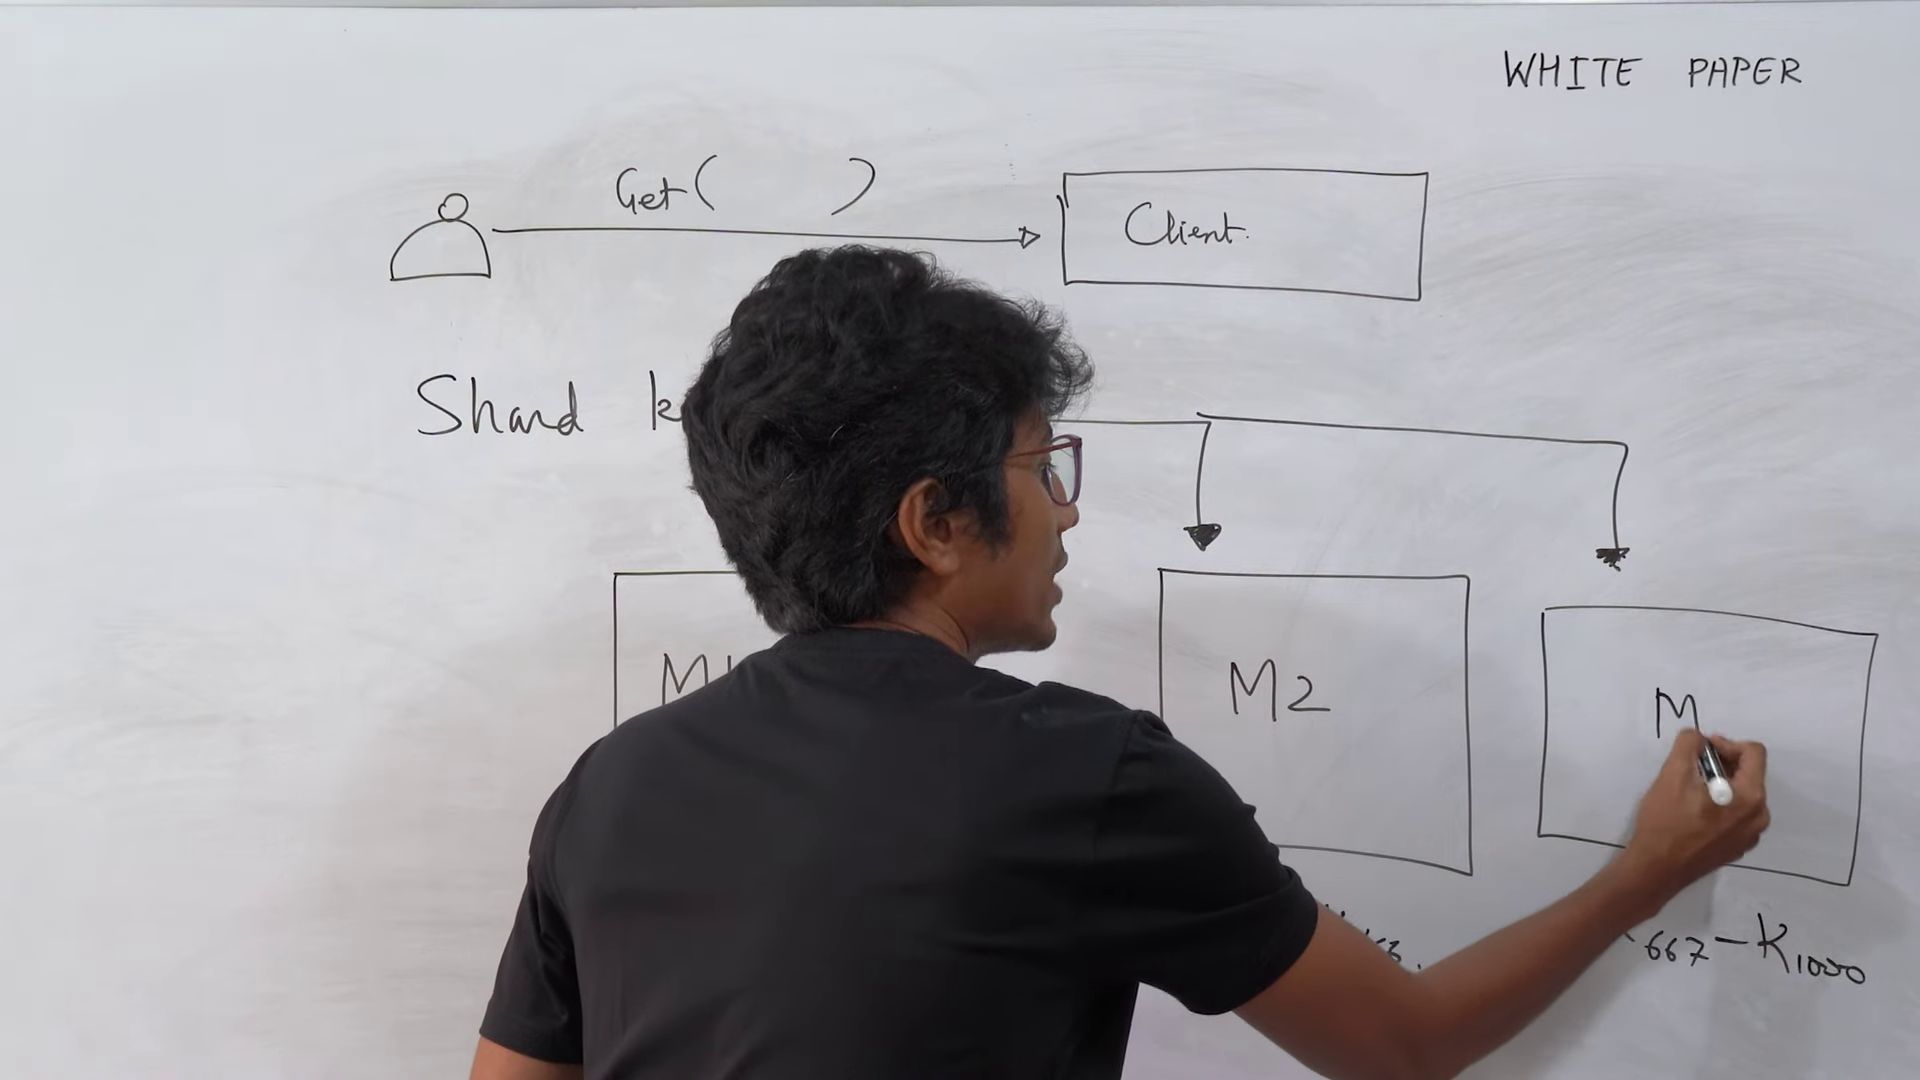 WHITE PAPER
Get( )
Client.
Shard
M1
M2
M
667 - K1000